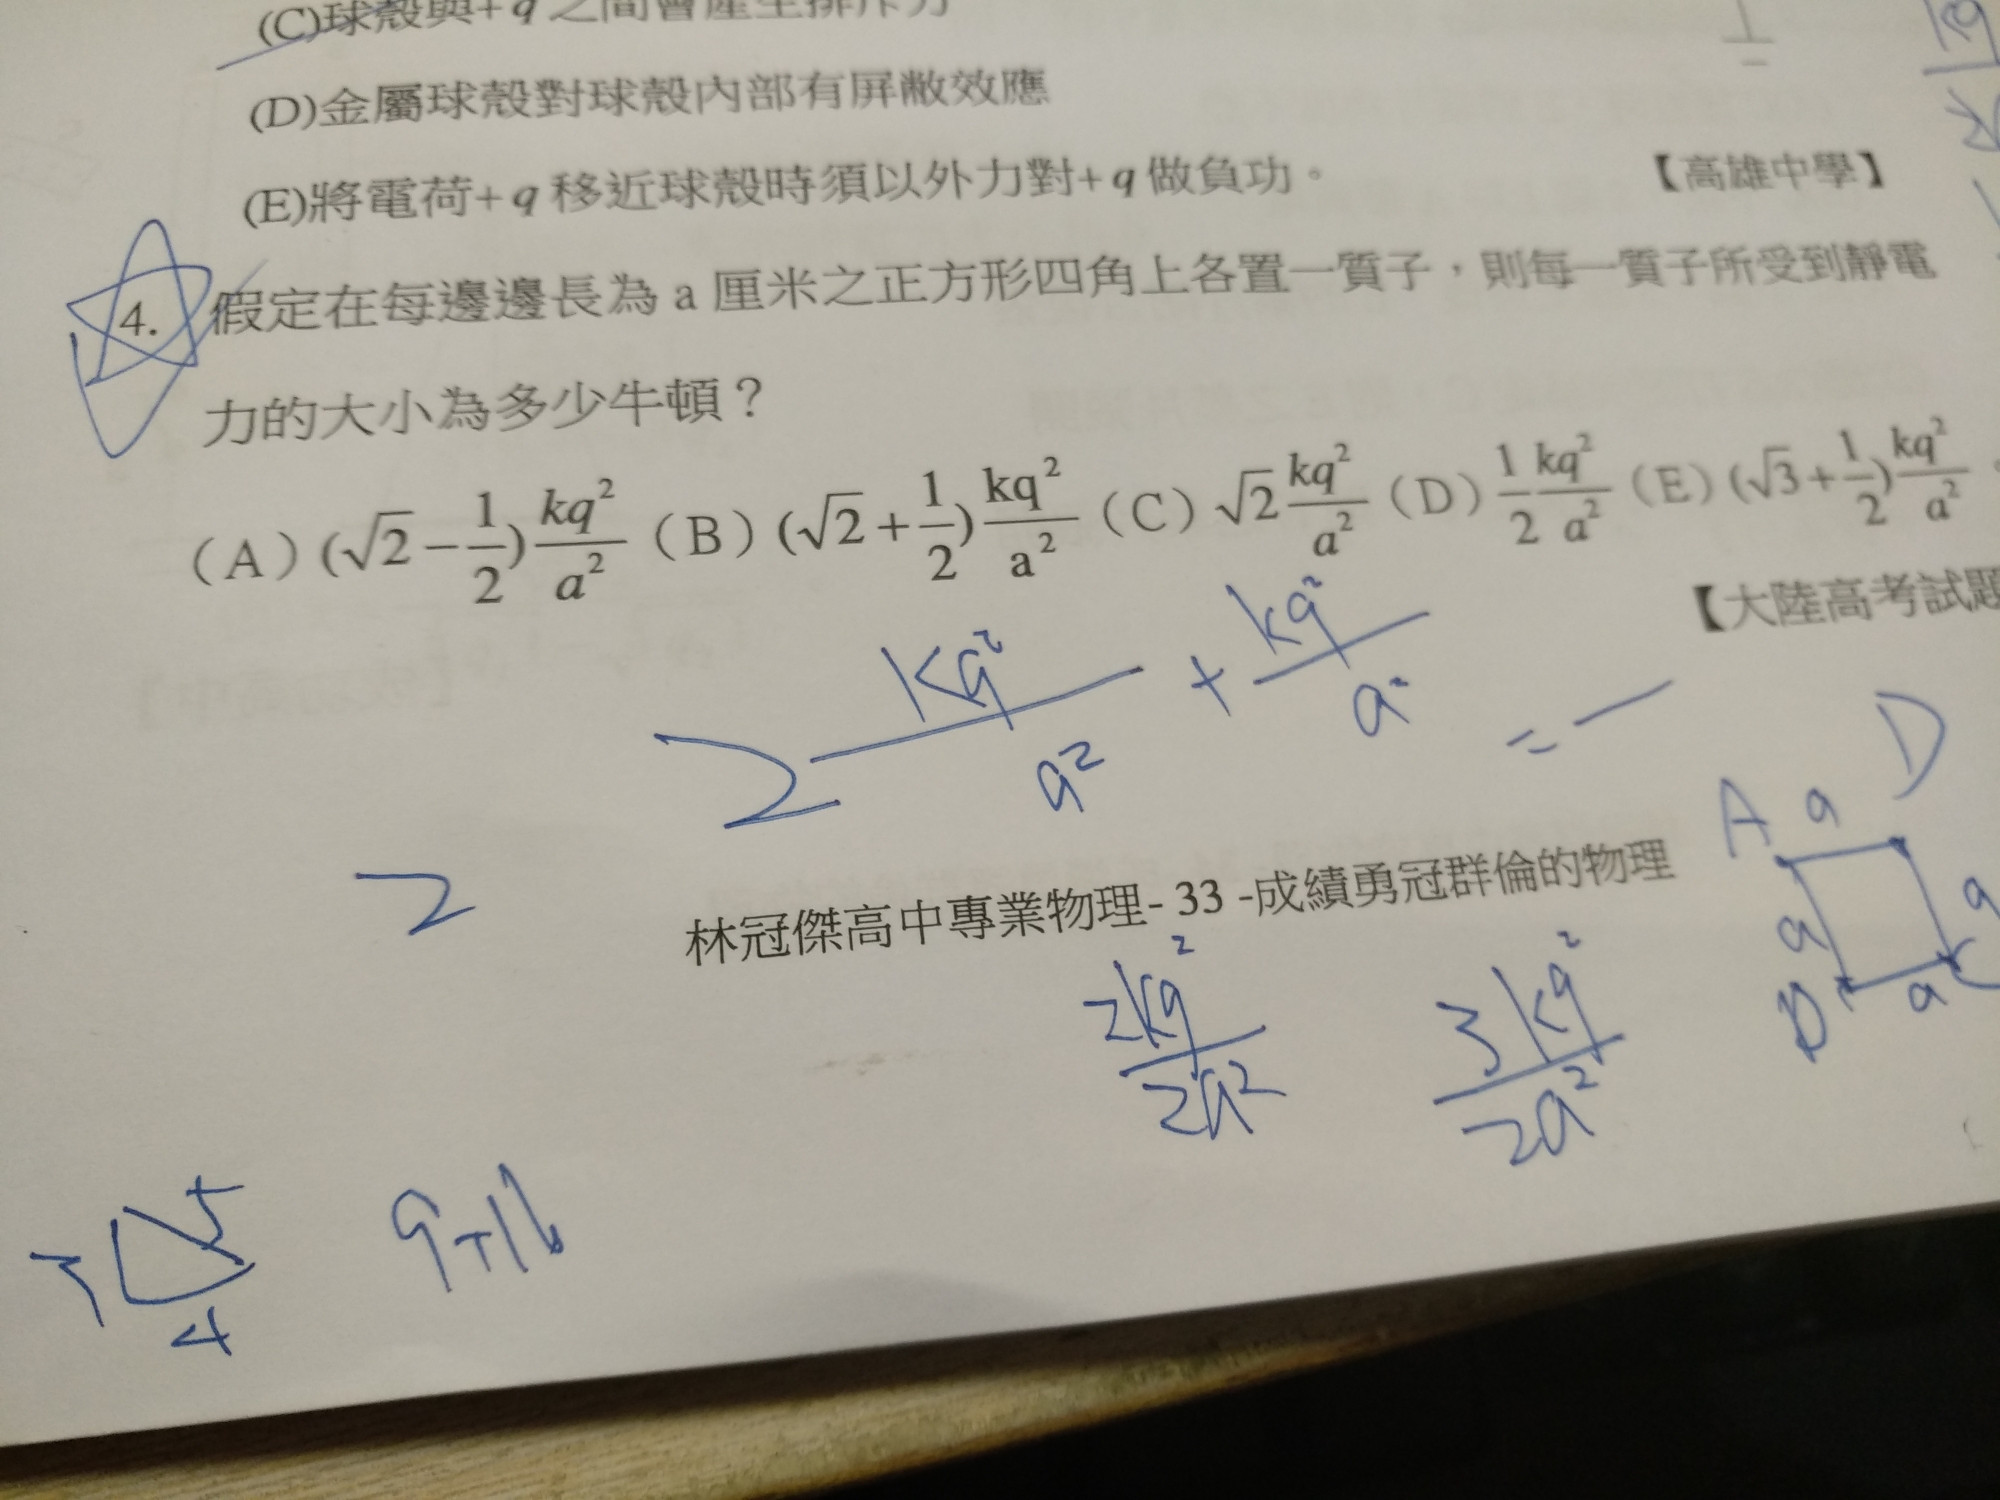 (C)球殼與+q之間會產生排斥力
(D)金屬球殼對球殼內部有屏敝效應
(E)將電荷+q移近球殼時須以外力對+q做負功。 【高雄中學】
4. 假定在每邊邊長為 a 厘米之正方形四角上各置一質子，則每一質子所受到靜電
力的大小為多少牛頓？
(A)(√2-1/2)kq²/a² (B)(√2+1/2)kq²/a² (C)√2 kq²/a² (D)1/2 kq²/a² (E)(√3+1/2)kq²/a²。
【大陸高考試題
2 kq²/a² + kq²/a² = —
A a D
a a
B a C
2
林冠傑高中專業物理- 33 -成績勇冠群倫的物理
2kq²/2a² 3kq²/2a²
3 5 4
9+16